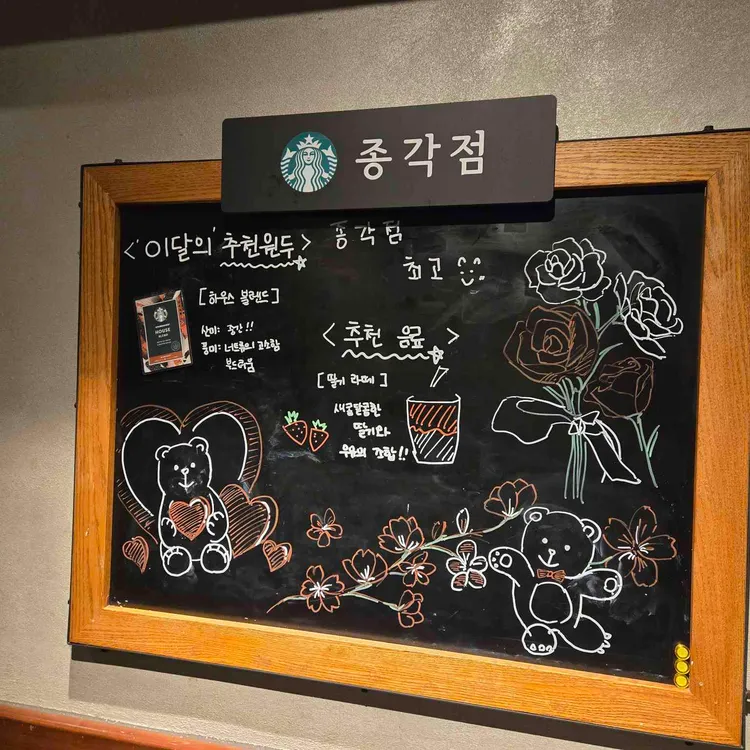 종각점
<'이달의' 추천원두>
종각점
최고
[하우스 블렌드]
HOUSE
BLEND
산미: 중간!!
풍미: 너트류의 고소함
부드러움
<추천 음료>
[딸기 라떼]
새콤달콤한
딸기와
우유의 조합!!